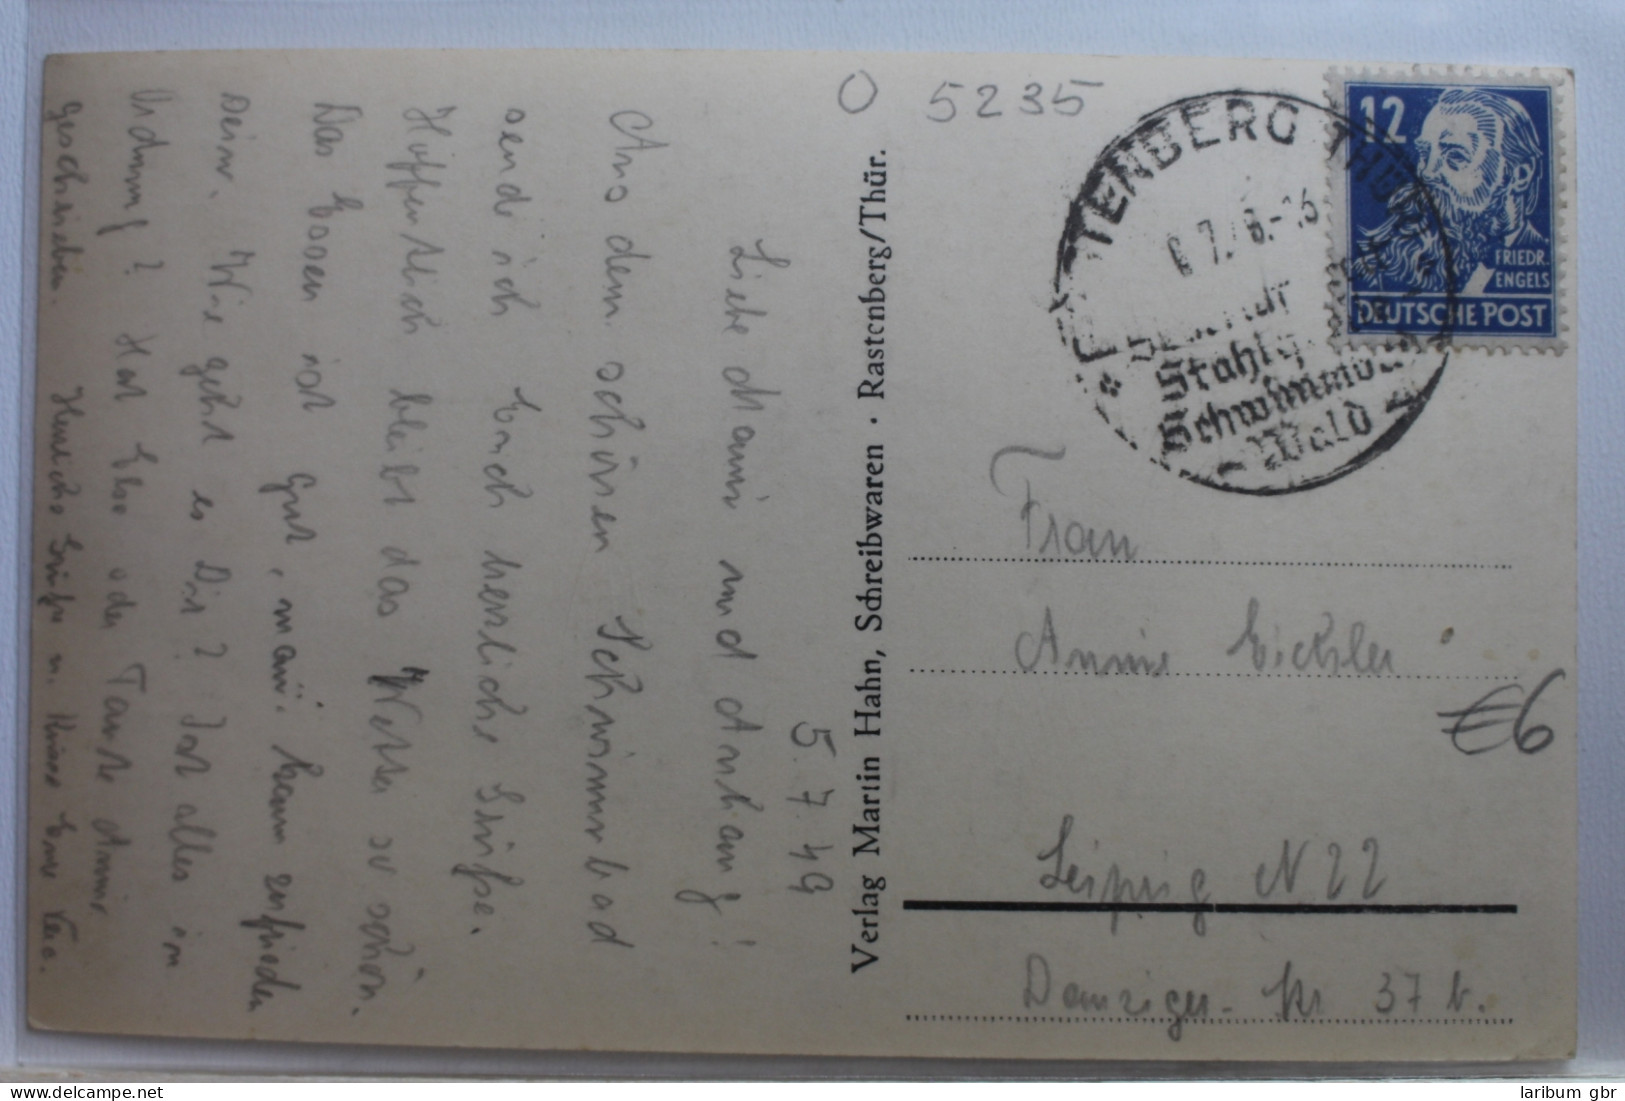 5.7.49
Liebe Mami und Anhang!
Aus dem schönen Schwimmbad
sende ich Euch herzliche Grüße.
Hoffentlich bleibt das Wetter so schön.
Das Essen ist gut, man kann zufrieden
sein. Wie geht es Dir? Ist alles in
Ordnung? Hat Else oder Tante Annie
geschrieben. Herzliche Grüße u. Küsse Eure
Verlag Martin Hahn, Schreibwaren · Rastenberg/Thür.
O 5235
TENBERG THÜR
Stahlq
Schwimmbad
Wald
12
FRIEDR.
ENGELS
DEUTSCHE POST
Frau
Annie Eichler
€6
Leipzig N 22
Danziger- Str 37 b.
laribum gbr